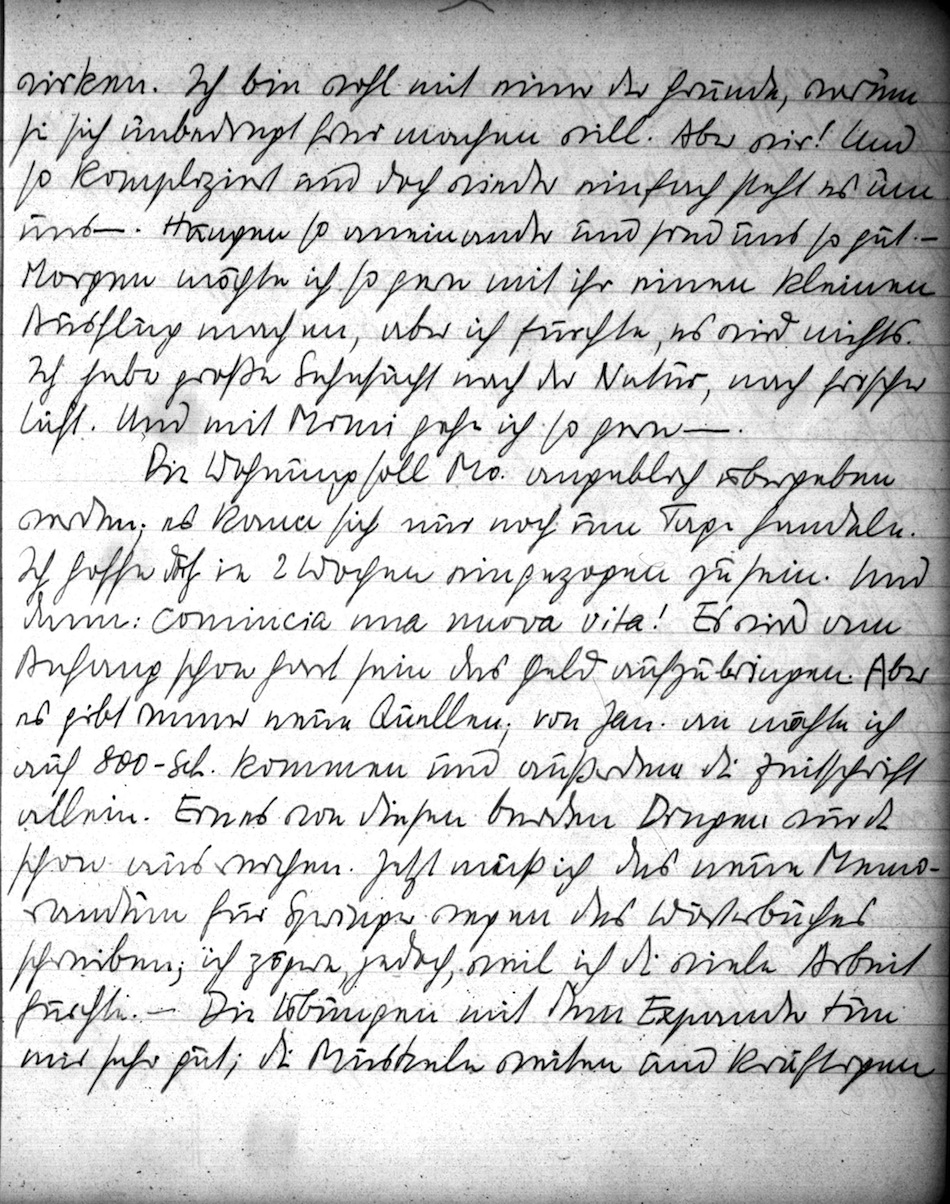 wirken. Ich bin wohl mit einer der Gründe, warum
sie sich unbedingt frei machen will. Aber wir! Und
so kompliziert und doch wieder einfach steht es um
uns—. Hängen so aneinander und sind uns so gut.—
Morgen möchte ich so gern mit ihr einen kleinen
Ausflug machen, aber ich fürchte, es wird nichts.
Ich habe große Sehnsucht nach der Natur, nach frischer
Luft. Und mit Mimi gehe ich so gern—.
Die Wohnung soll Mo. angeblich übergeben
werden; es kann sich nur noch um Tage handeln.
Ich hoffe doch in 2 Wochen eingezogen zu sein. Und
dann: Comincia una nuova vita! Es wird am
Anfang schon hart sein das Geld aufzubringen. Aber
es gibt immer neue Quellen; von Jan. an möchte ich
auf 800-Sch. kommen und außerdem die Zeitschrift
allein. Eines von diesen beiden Dingen würde
schon ausreichen. Jetzt muß ich das neue Memo-
randum für Springer wegen des Wörterbuches
schreiben; ich zögere, jedoch, weil ich die viele Arbeit
fürchte.— Die Übungen mit dem Expander tun
mir sehr gut; die Muskeln weiten und kräftigen